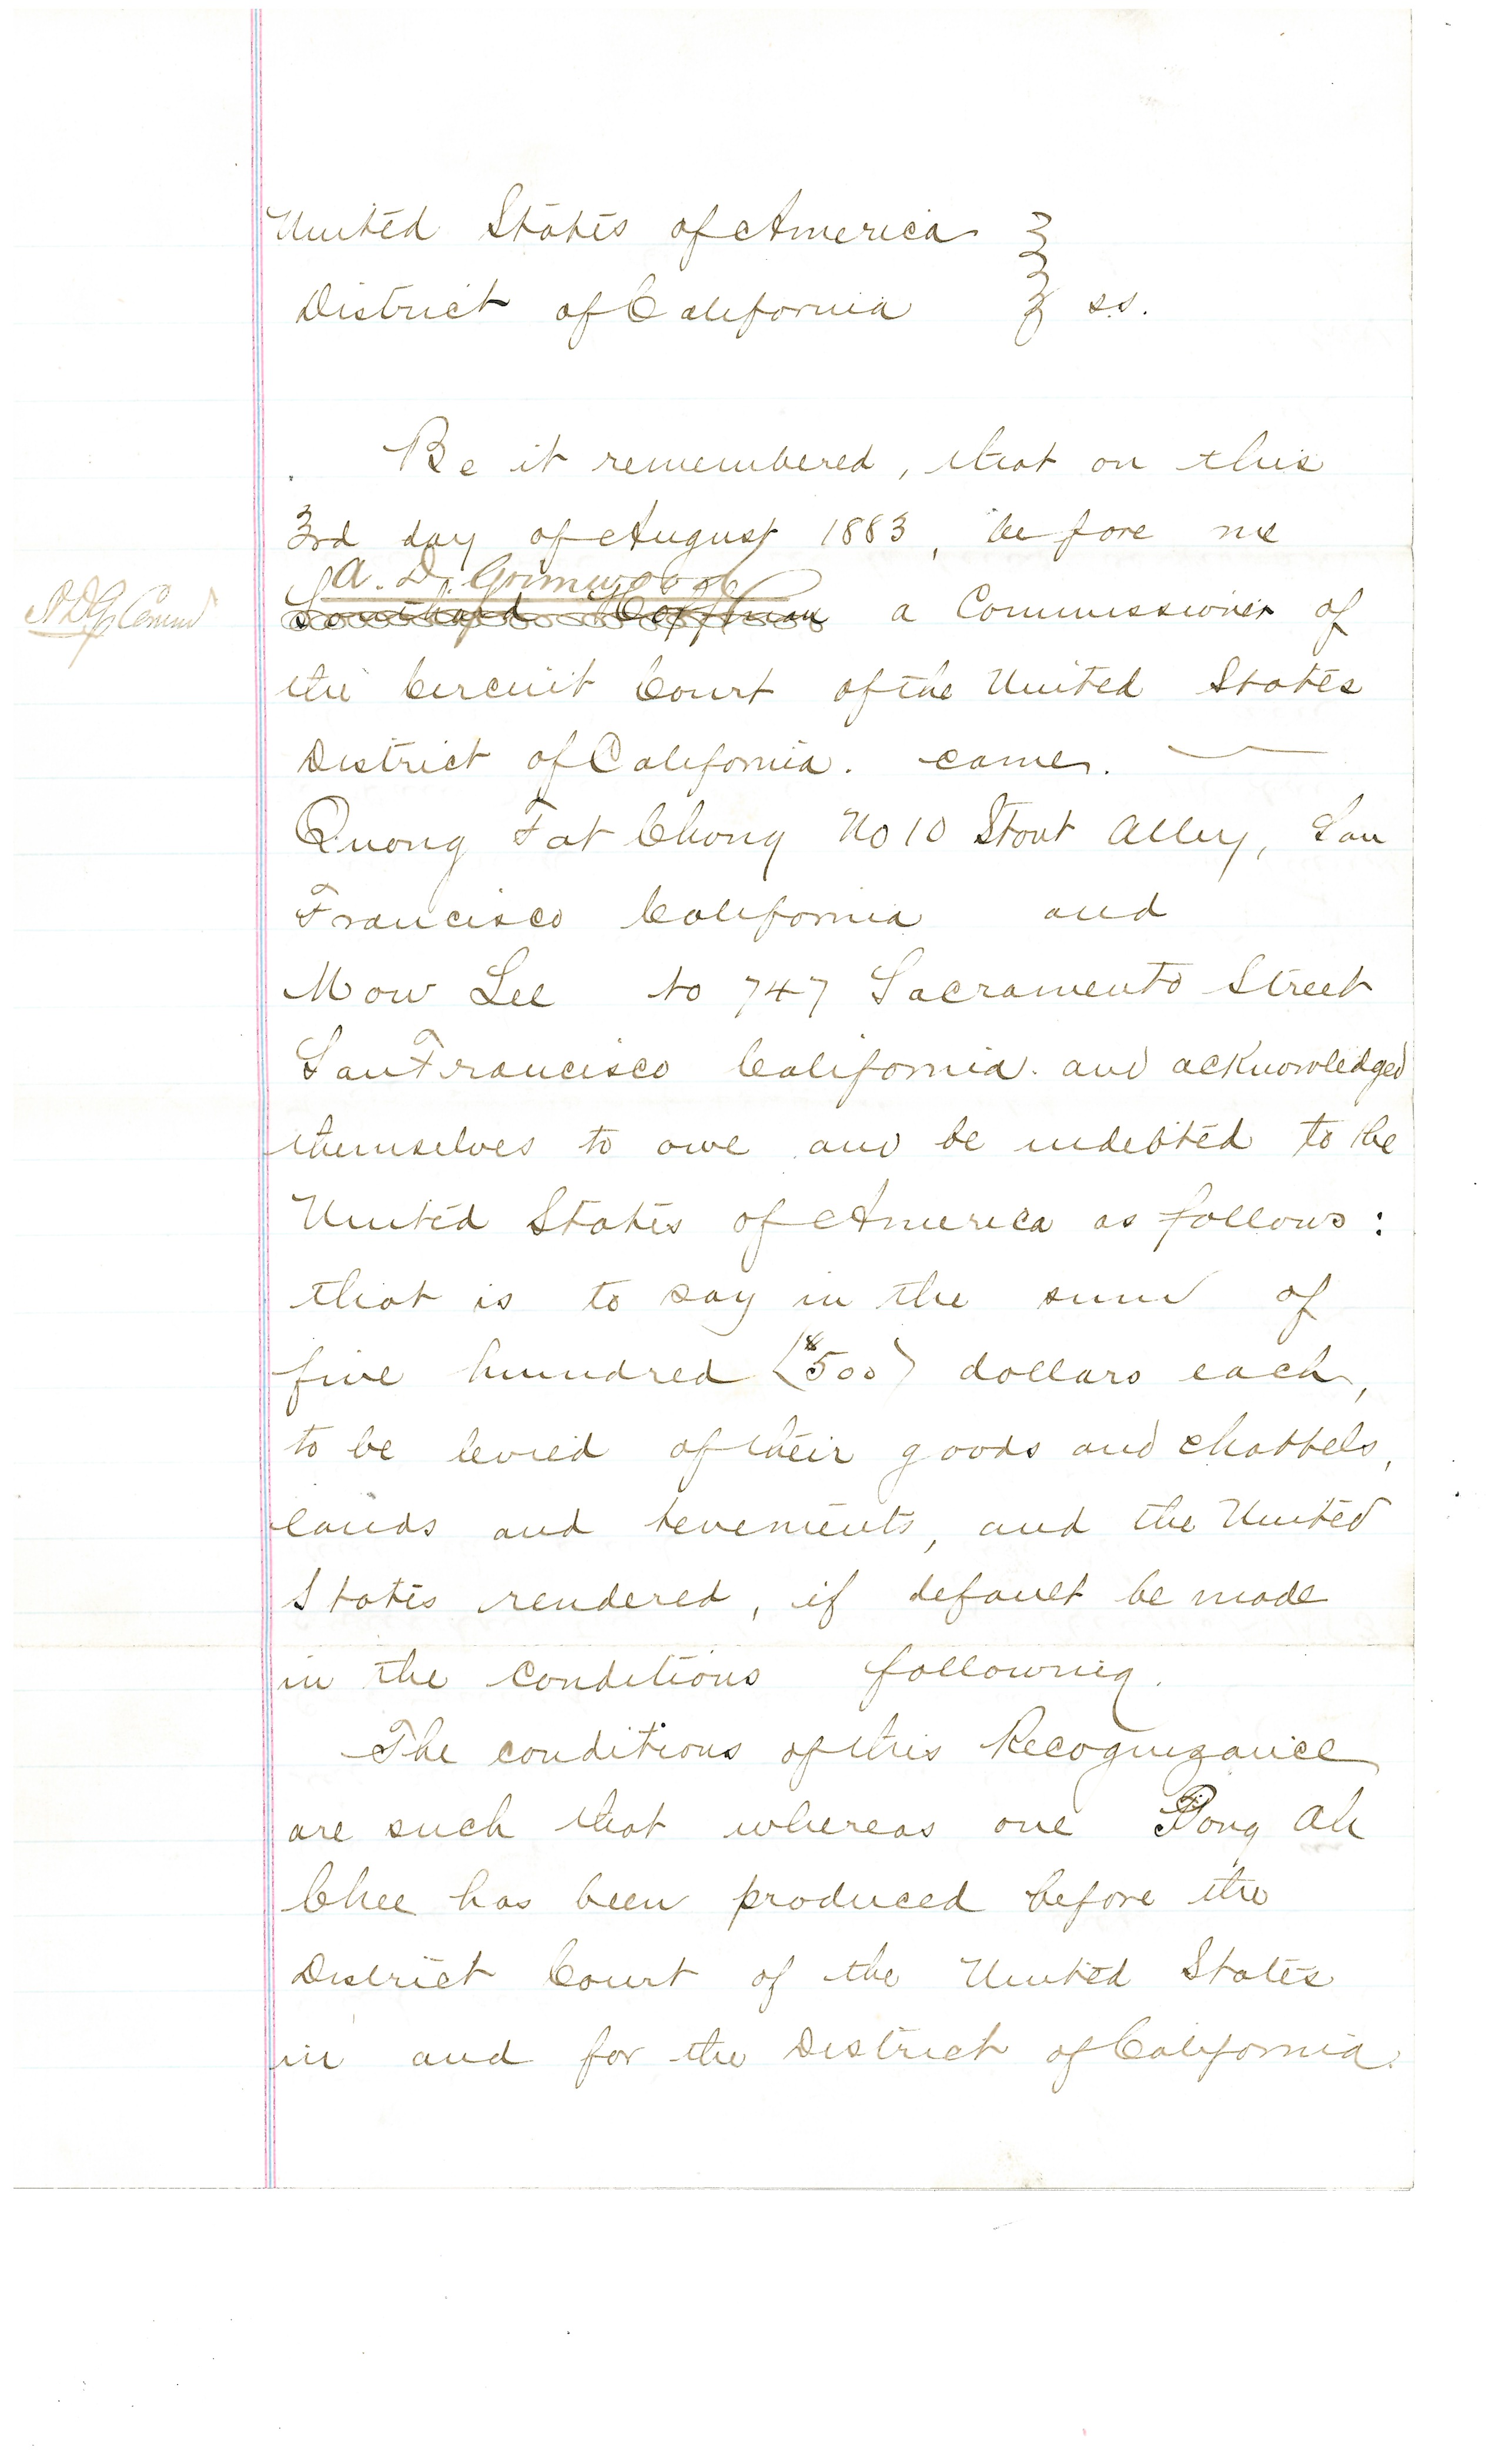 United States of America
District of California } ss.
Be it remembered, that on this
3rd day of August 1883, before me
A. D. Grimwood
Southard Hoffman a Commissioner of
A D G Comm
the Circuit Court of the United States
District of California. came.
Quong Fat Chong No 10 Stout Alley, San
Francisco California and
Mow Lee to 747 Sacramento Street
San Francisco California. and acknowledged
themselves to owe and be indebted to the
United States of America as follows:
that is to say in the sum of
five hundred ($500) dollars each,
to be levied of their goods and chattels,
lands and tenements, and the United
States rendered, if default be made
in the conditions following.
The conditions of this Recognizance
are such that whereas one Pong Ah
Chee has been produced before the
District Court of the United States
in and for the District of California.